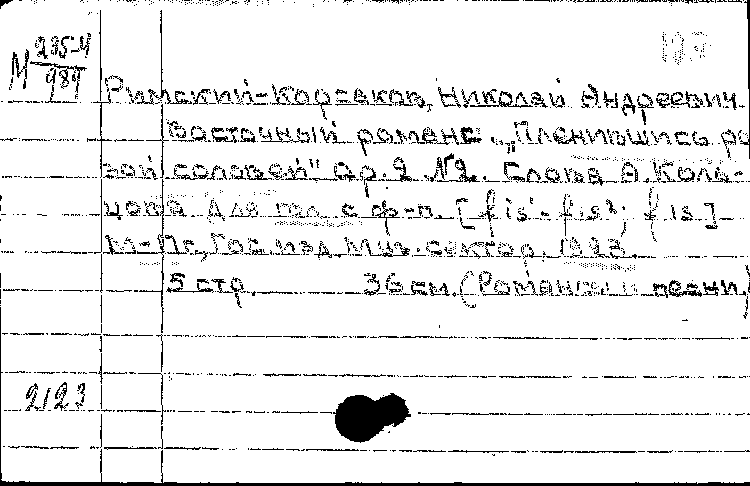 М 285-4
989
Римский-Корсаков, Николай Андреевич.
Восточный романс „Пленившись ро
зой соловей" ор. 2 №2. Слова А. Коль-
цова Для гол. с ф-п. [fis¹-fis²; fis]
М-Пг, Гос. изд. Муз. сектор, 1923.
5 стр. 36 см. (Романсы и песни)
2123